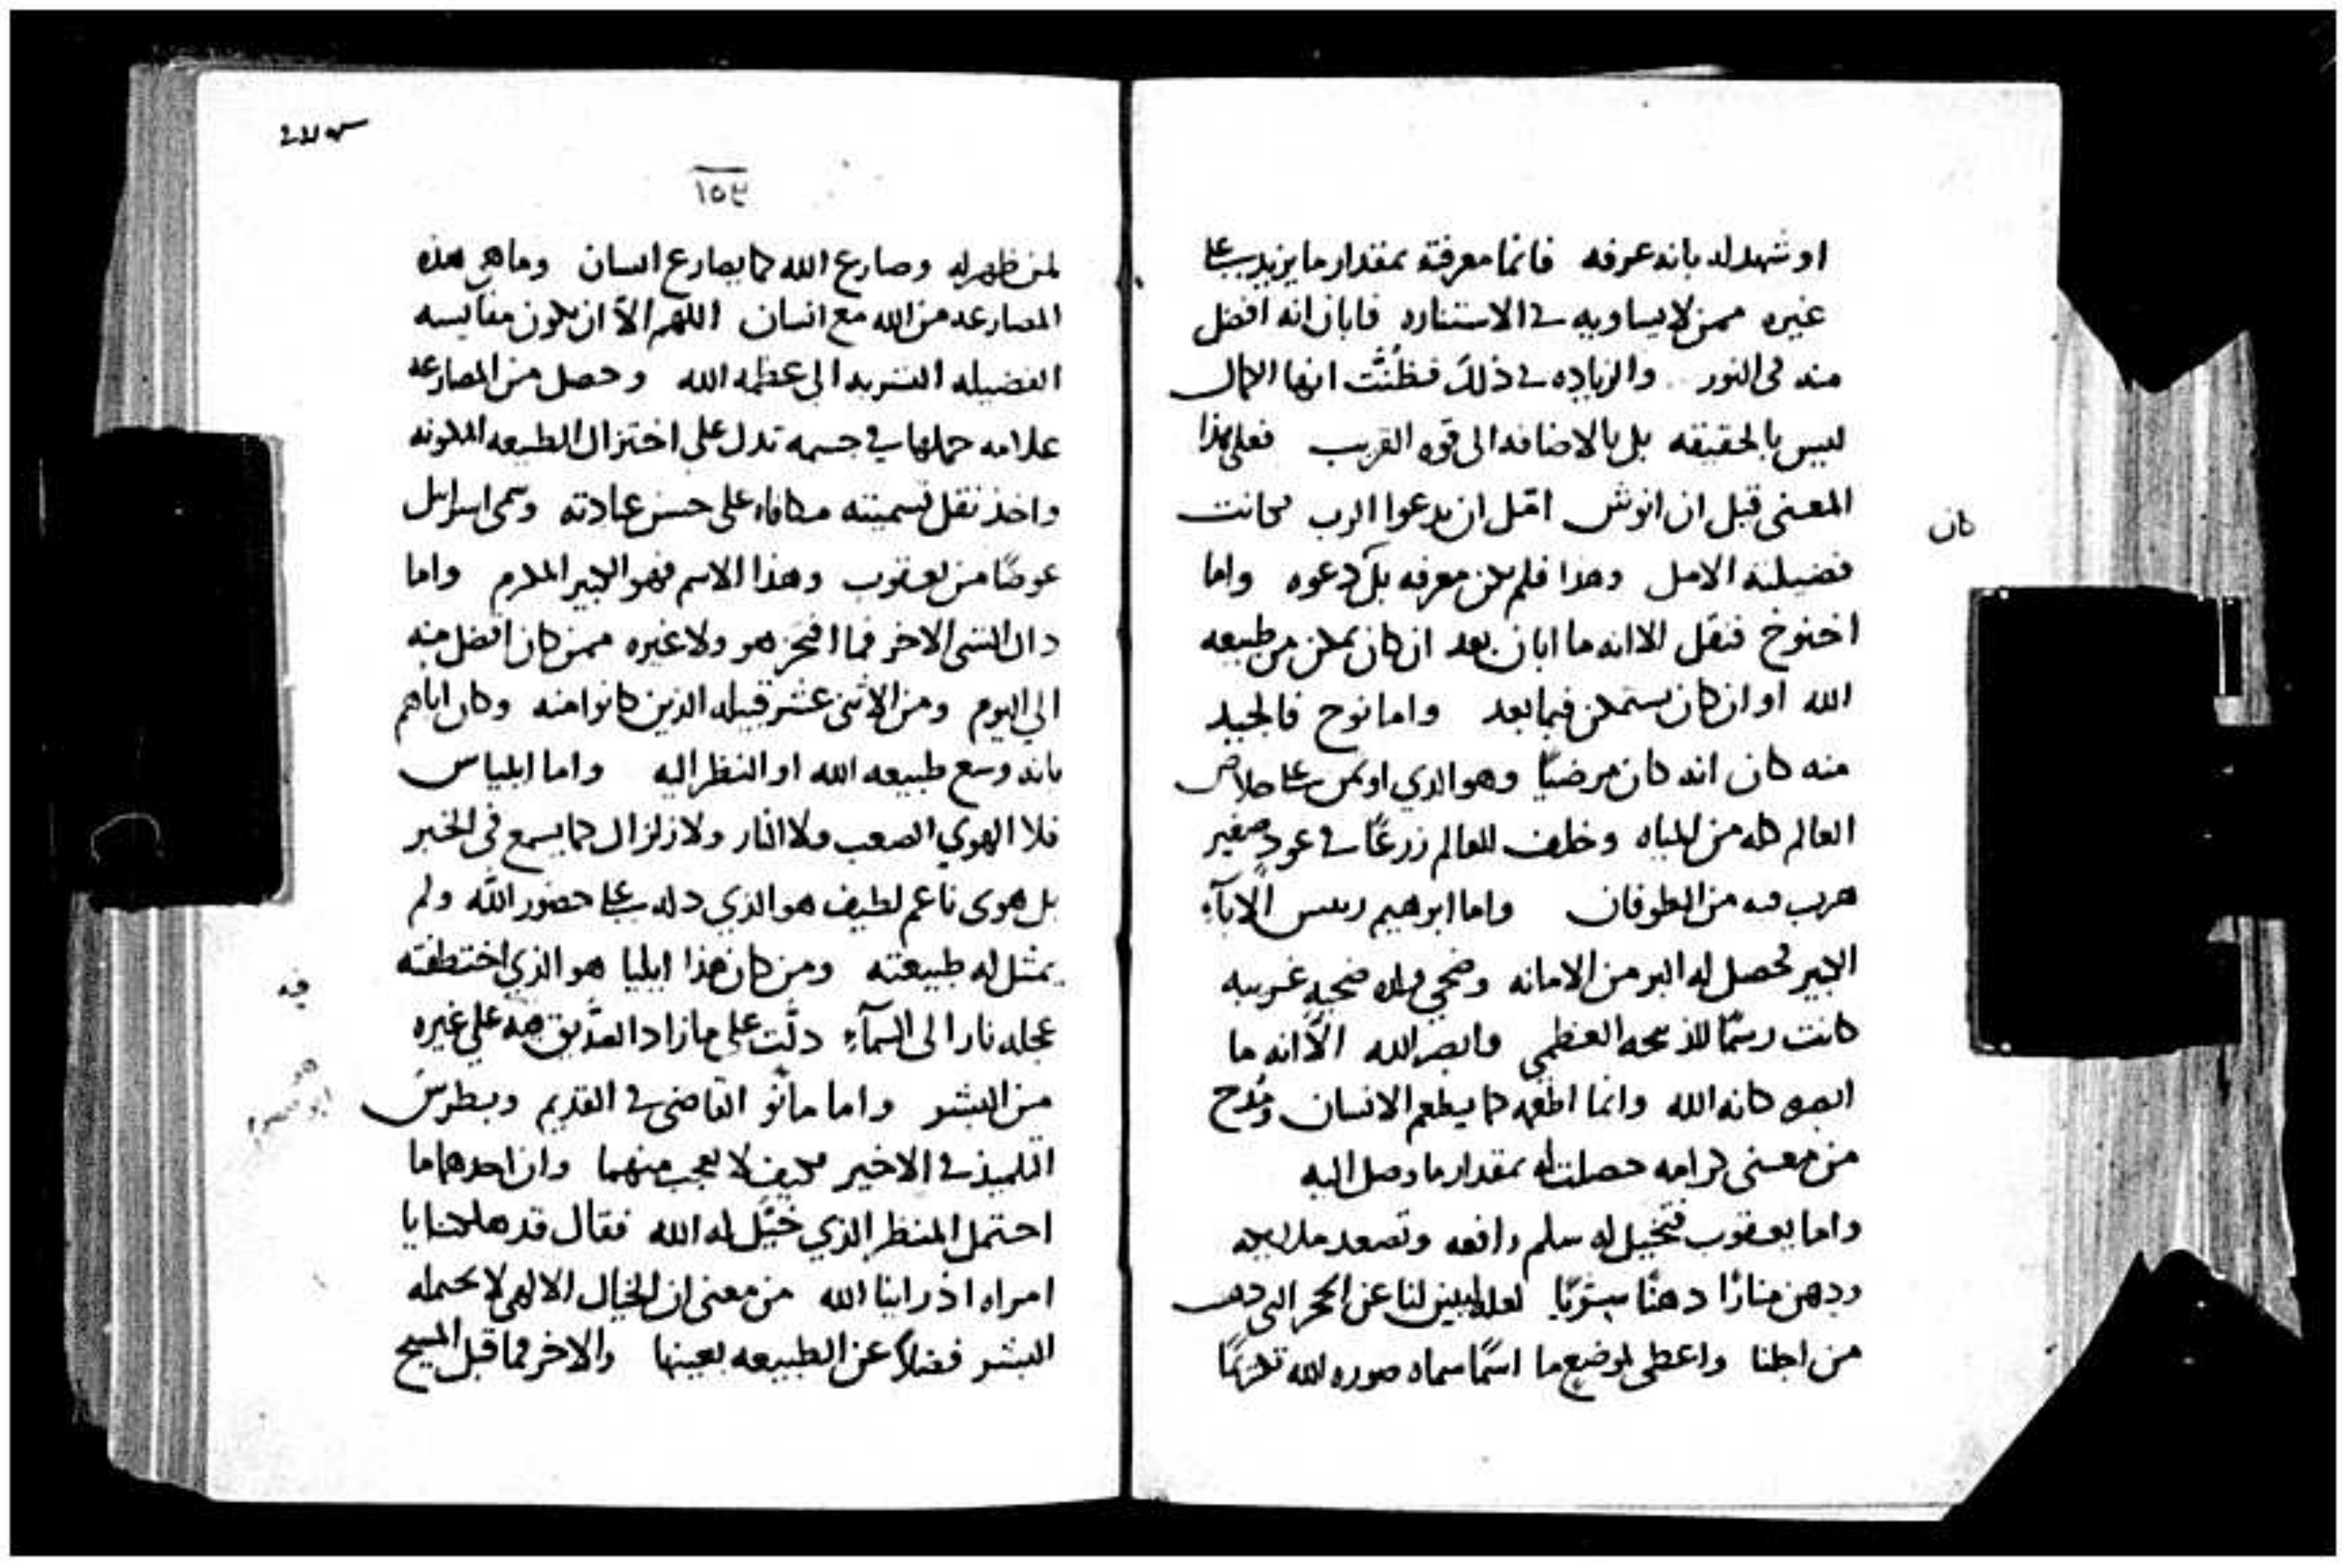 او شهد له بانه عرفه فانما معرفته بمقدار ما يزيد على
غيره ممن لا يساويه في الاستناره فابان انه افضل
منه في النور والزياده في ذلك فظُنَّت انها الكمال
ليس بالحقيقه بل بالاضافه الى قوه القريب فعلى هذا
المعنى قيل ان انوش امّل ان يدعوا الرب فكانت
كان
فضيلته الامل وهذا فلم يكن معرفه بل دعوه واما
اخنوخ فنقل الا انه ما ابان بعد ان كان تمكن من طبيعه
الله او ان كان يستمكن فيما بعد واما نوح فالجيد
منه كان انه كان مرضيًا وهو الذي اوتمن على خلاص
العالم كله من المياه وخلف للعالم زرعًا في عود صغير
هرب به من الطوفان واما ابرهيم رييس الابآء
الكبير فحصل له البر من الامانه وضحي ضحيه غريبه
كانت رسمًا للذبيحه العظمى وابصر الله الّا انه ما
ابصره كانه الله وانما اطعمه كما يطعم الانسان ومُدح
من معنى كرامه حصلت له بمقدار ما وصل اليه
واما يعقوب فتخيل له سلم رافعه وتصعد ملايكه
ودهن منارًا دهنًا سرّيًا لعله ليبين لنا عن الحجر التي دهنت
من اجلنا واعطى لموضع ما اسمًا سماه صوره الله تكريمًا
١٥٣
لمن ظهر له وصارع الله كما يصارع انسان وما هي هذه
المصارعه من الله مع انسان اللهم الّا ان تكون مقايسه
الفضيله البشريه الى عظمه الله وحصل من المصارعه
علامه حملها في جسمه تدل على اختزال الطبيعه المكونه
واخذ نقل تسميته مكافاه على حسن عبادته وسمى اسرايل
عوضًا من يعقوب وهذا الاسم فهو الكبير المكرم واما
ذاك الشى الاخر فما افتخر هو ولا غيره ممن كان افضل منه
الى اليوم ومن الاثنى عشر قبيله الذين كانوا منه وكان اباهم
بانه وسع طبيعه الله او النظر اليه واما ايلياس
فلا الهوي الصعب ولا النار ولا زلزال كما يسمع في الخبر
بل هوى ناعم لطيف هو الذي دله على حضور الله ولم
يمثل له طبيعته ومن كان هذا ايليا هو الذي اختطفته
فيه
عجله نار الى السمآء دلّت على ما زاد الصدّيق به على غيره
من البشر واما مانو القاضي في القديم وبطرس
التلميذ في الاخير فكيف لا تعجب منهما وان احدهما ما
احتمل المنظر الذي خيّل له الله فقال قد هلكنا يا
امراه اذ راينا الله من معنى ان الخيال الالهى لا يحتمله
البشر فضلًا عن الطبيعه بعينها والاخر فما قبل المسيح